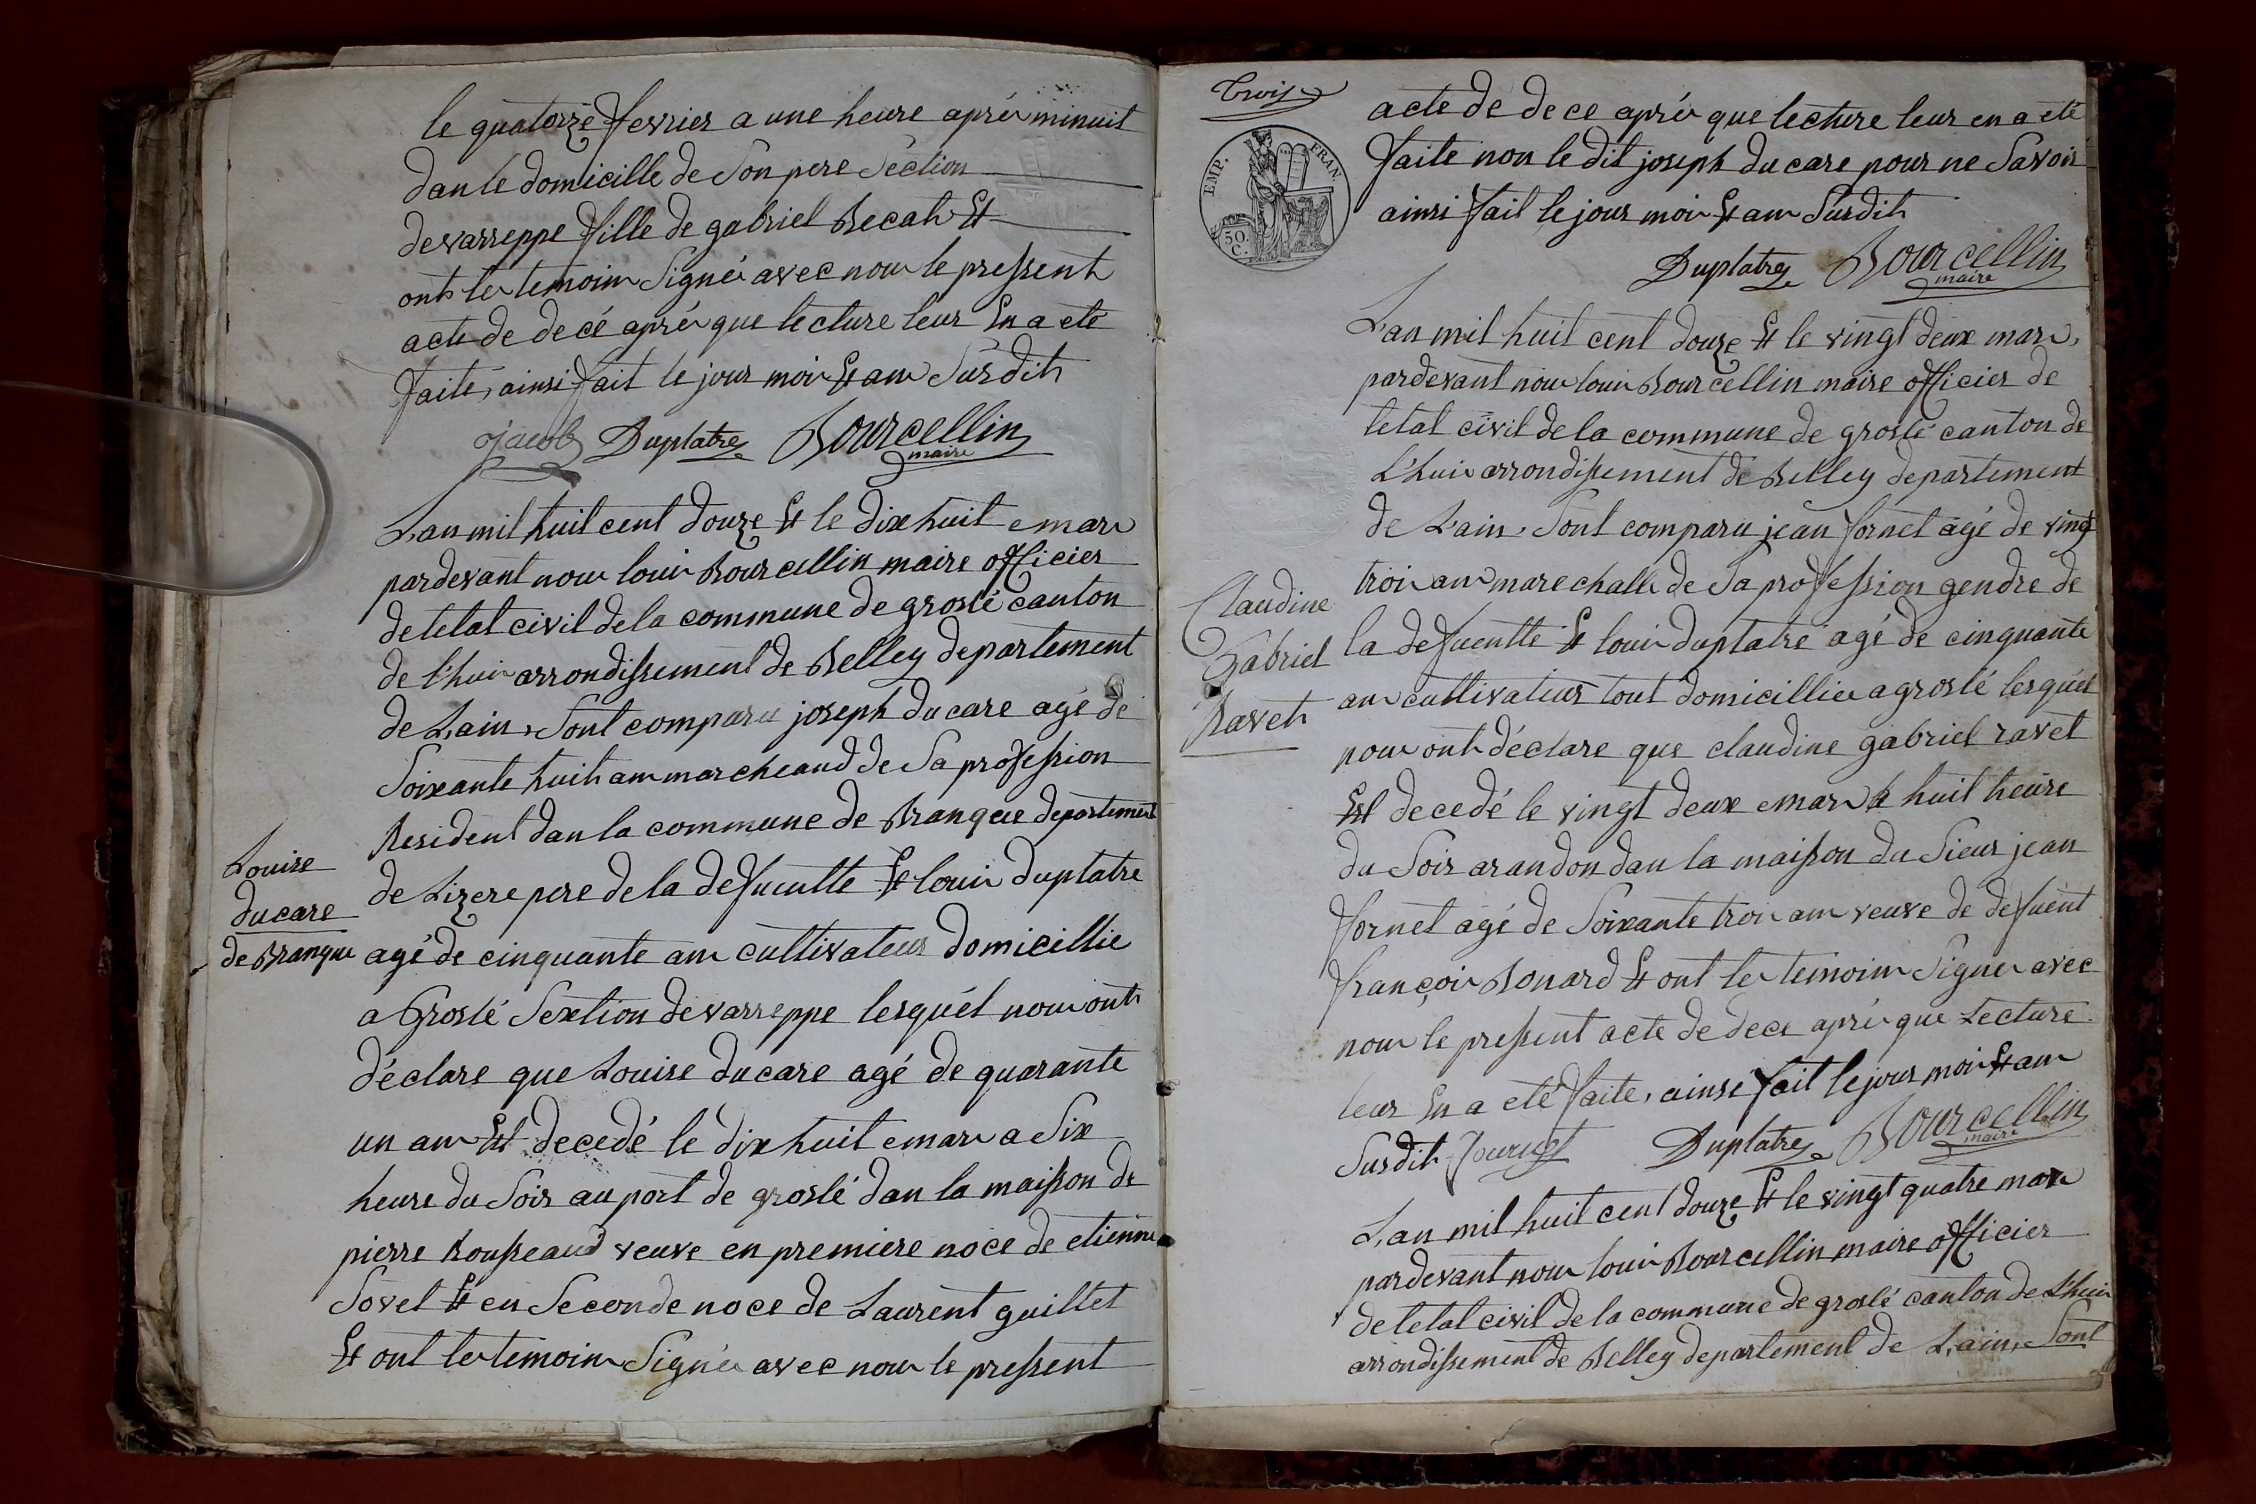 le quatorze fevrier a une heure aprés minuit
dans le domicille de Son pere Section
de varreppe fille de gabriel Recah Et
onts les temoins Signés avec nous le pressent
acte de decé aprés que lecture leur En a eté
faite, ainsi fait le jour mois Et ans Susdits
jacob Duplatre Bourcellin
maire
L'an mil huit cent douze Et le dix huit e mars
pardevant nous louis Bourcellin maire officier
de letat civil de la commune de groslé canton
de l'huis arrondissement de Belley departement
de L'ain, Sont comparu joseph ducare agé de
Soixante huit ans marcheand de Sa profession
Resident dans la commune de Brangue departement
de Lizere pere de la defuentte Et louis duplatre
agé de cinquante ans cultivateur domicillie
a Groslé Sextion de varreppe lesquél nous ont
déclare que Louise ducare agé de quarante
un ans Est decedé le dix huit e mars a Six
heure du Soir au port de groslé dans la maisson de
pierre Rousseaud veuve en premiere noce de etienne
Sovel Et en Seconde noce de Laurent guillet
Et ont les temoins Signés avec nous le pressent
Louise
ducare
de Brangue
Trois
EMP. FRAN.
50.
C.
acte de dece aprés que lecture leur en a eté
faite non le dit joseph du care pour ne Savoir
ainsi fait le jour mois Et ans Susdits
Duplatre Bourcellin
maire
L'an mil huit cent douze Et le vingt deux mars,
pardevant nous louis Bourcellin maire officier de
letat civil de la commune de groslé canton de
L'huis arrondissement de Belley departement
de L'ain, Sont comparu jean fornet agé de vingt
trois ans marechalle de Sa profession gendre de
la defuentte Et louis duplatre agé de cinquante
ans cultivateur tout domicillies a groslé lesquél
nous onts déclare que claudine gabriel ravet
Est decedé le vingt deux e mars a huit heure
du Soir arandon dans la maisson du Sieur jean
fornet agé de Soixante trois ans veuve de defuent
françois Bonard Et ont les temoins Signes avec
nous le pressent acte de dece aprés que Lecture
leur En a eté faite, ainsi fait le jour mois Et ans
Susdits Duplatre Bourcellin
maire
L'an mil huit cent douze Et le vingt quatre mars
pardevant nous louis Bourcellin maire officier
de letat civil de la commune de groslé canton de L'huis
arrondissement de Belley departement de L'ain, Sont
Claudine
Gabriel
Ravet